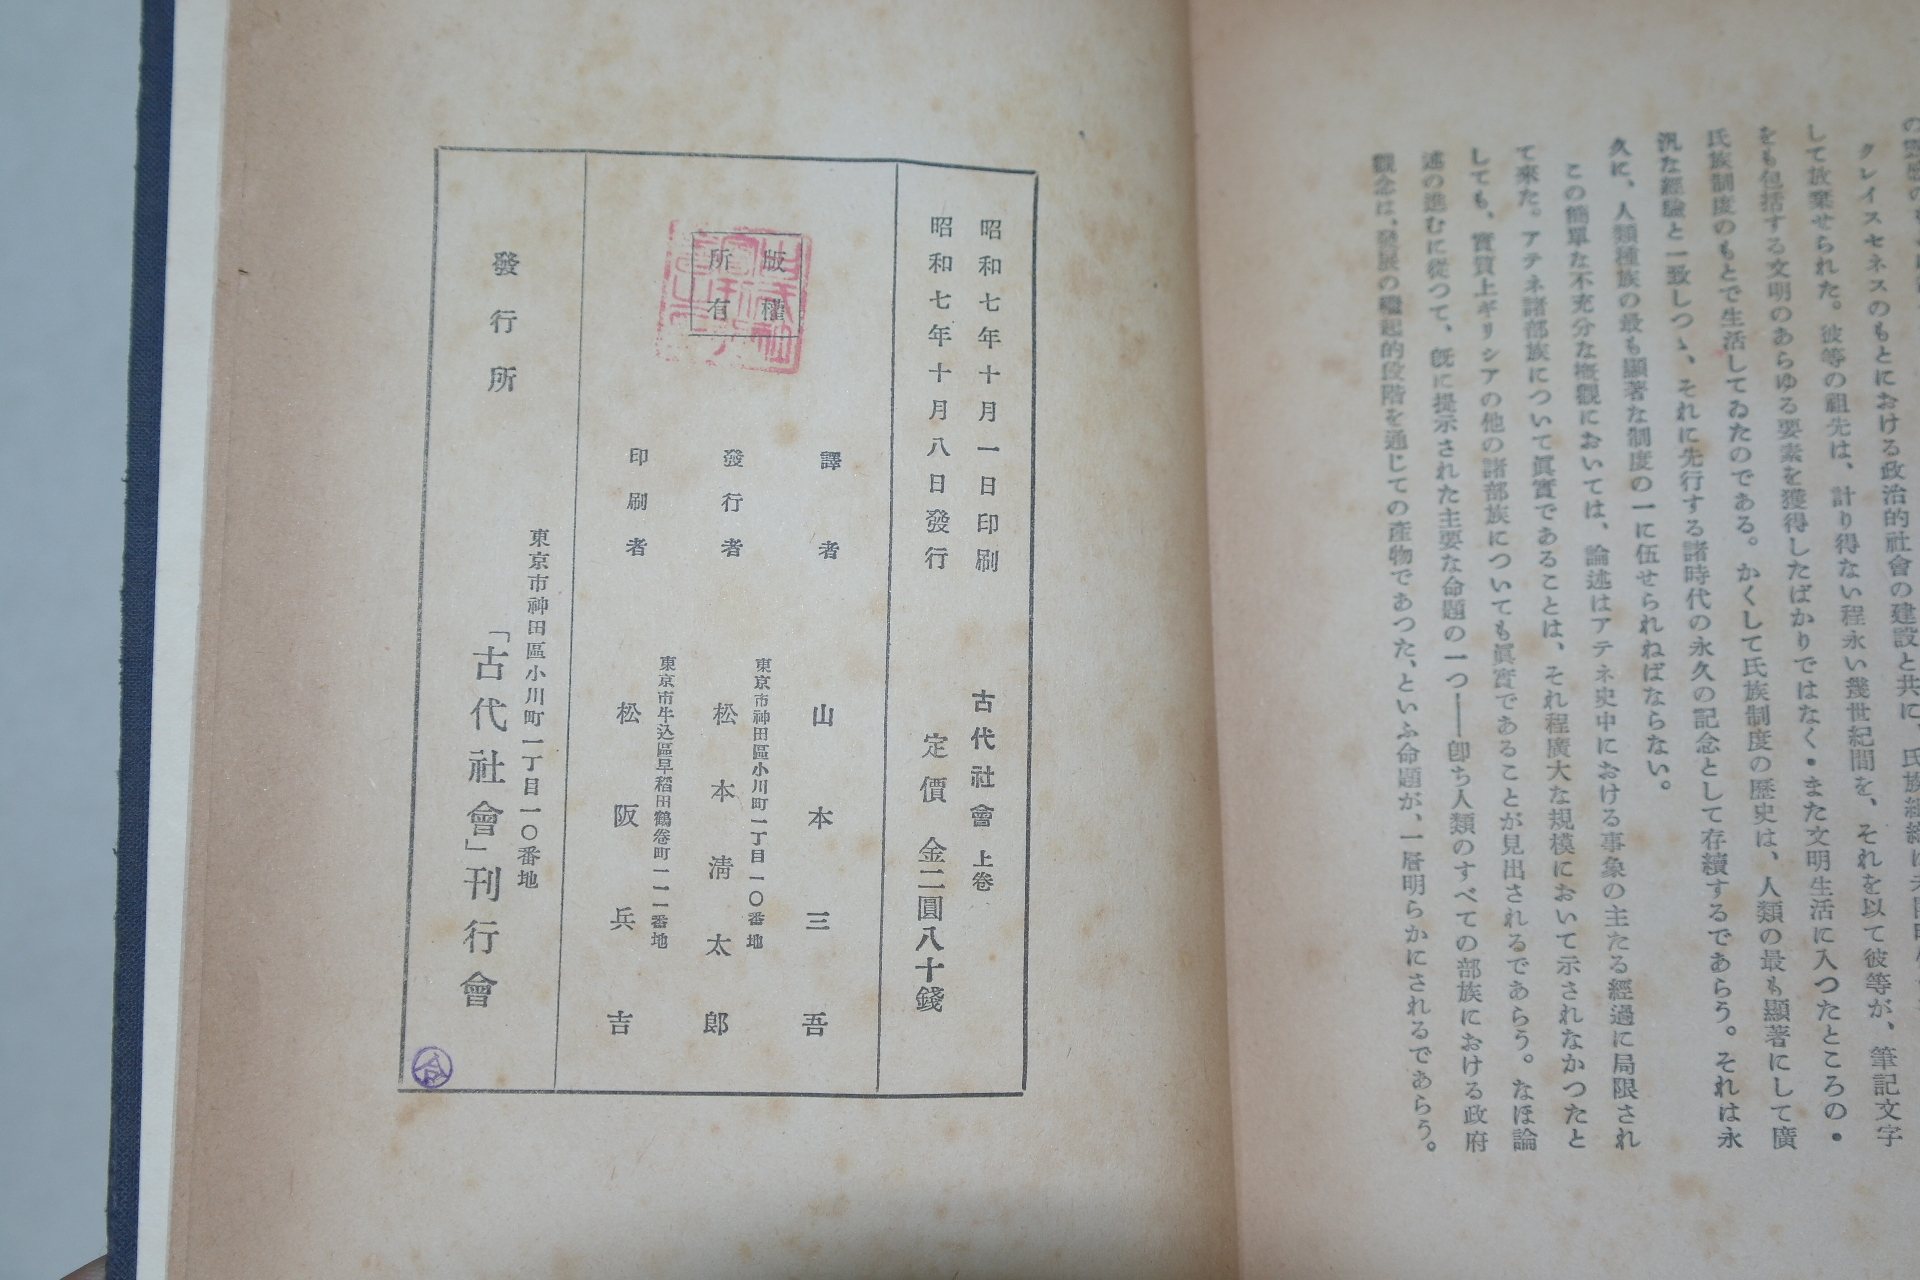 クレイスセネスのもとにおける政治的社會の建設と共に、氏族組織は
して放棄せられた。彼等の祖先は、計り得ない程永い幾世紀間を、それを以て彼等が、筆記文字
をも包括する文明のあらゆる要素を獲得したばかりではなく・また文明生活に入つたところの・
氏族制度のもとで生活してゐたのである。かくして氏族制度の歴史は、人類の最も顯著にして廣
汎な經驗と一致しつゝ、それに先行する諸時代の永久の記念として存續するであらう。それは永
久に、人類種族の最も顯著な制度の一に伍せられねばならない。
この簡單な不充分な概觀においては、論述はアテネ史中における事象の主たる經過に局限され
て來た。アテネ諸部族について眞實であることは、それ程廣大な規模において示されなかつたと
しても、實質上ギリシアの他の諸部族についても眞實であることが見出されるであらう。なほ論
述の進むに從つて、既に提示された主要な命題の一つ――卽ち人類のすべての部族における政府
觀念は、發展の繼起的段階を通じての產物であつた、といふ命題が、一層明らかにされるであらう。
昭和七年十月一日印刷
昭和七年十月八日發行
古代社會 上卷
定價 金二圓八十錢
版權
所有
譯者 山本三吾
東京市神田區小川町一丁目一〇番地
發行者 松本淸太郎
東京市牛込區早稻田鶴卷町一一一番地
印刷者 松阪兵吉
發行所
東京市神田區小川町一丁目一〇番地
「古代社會」刊行會